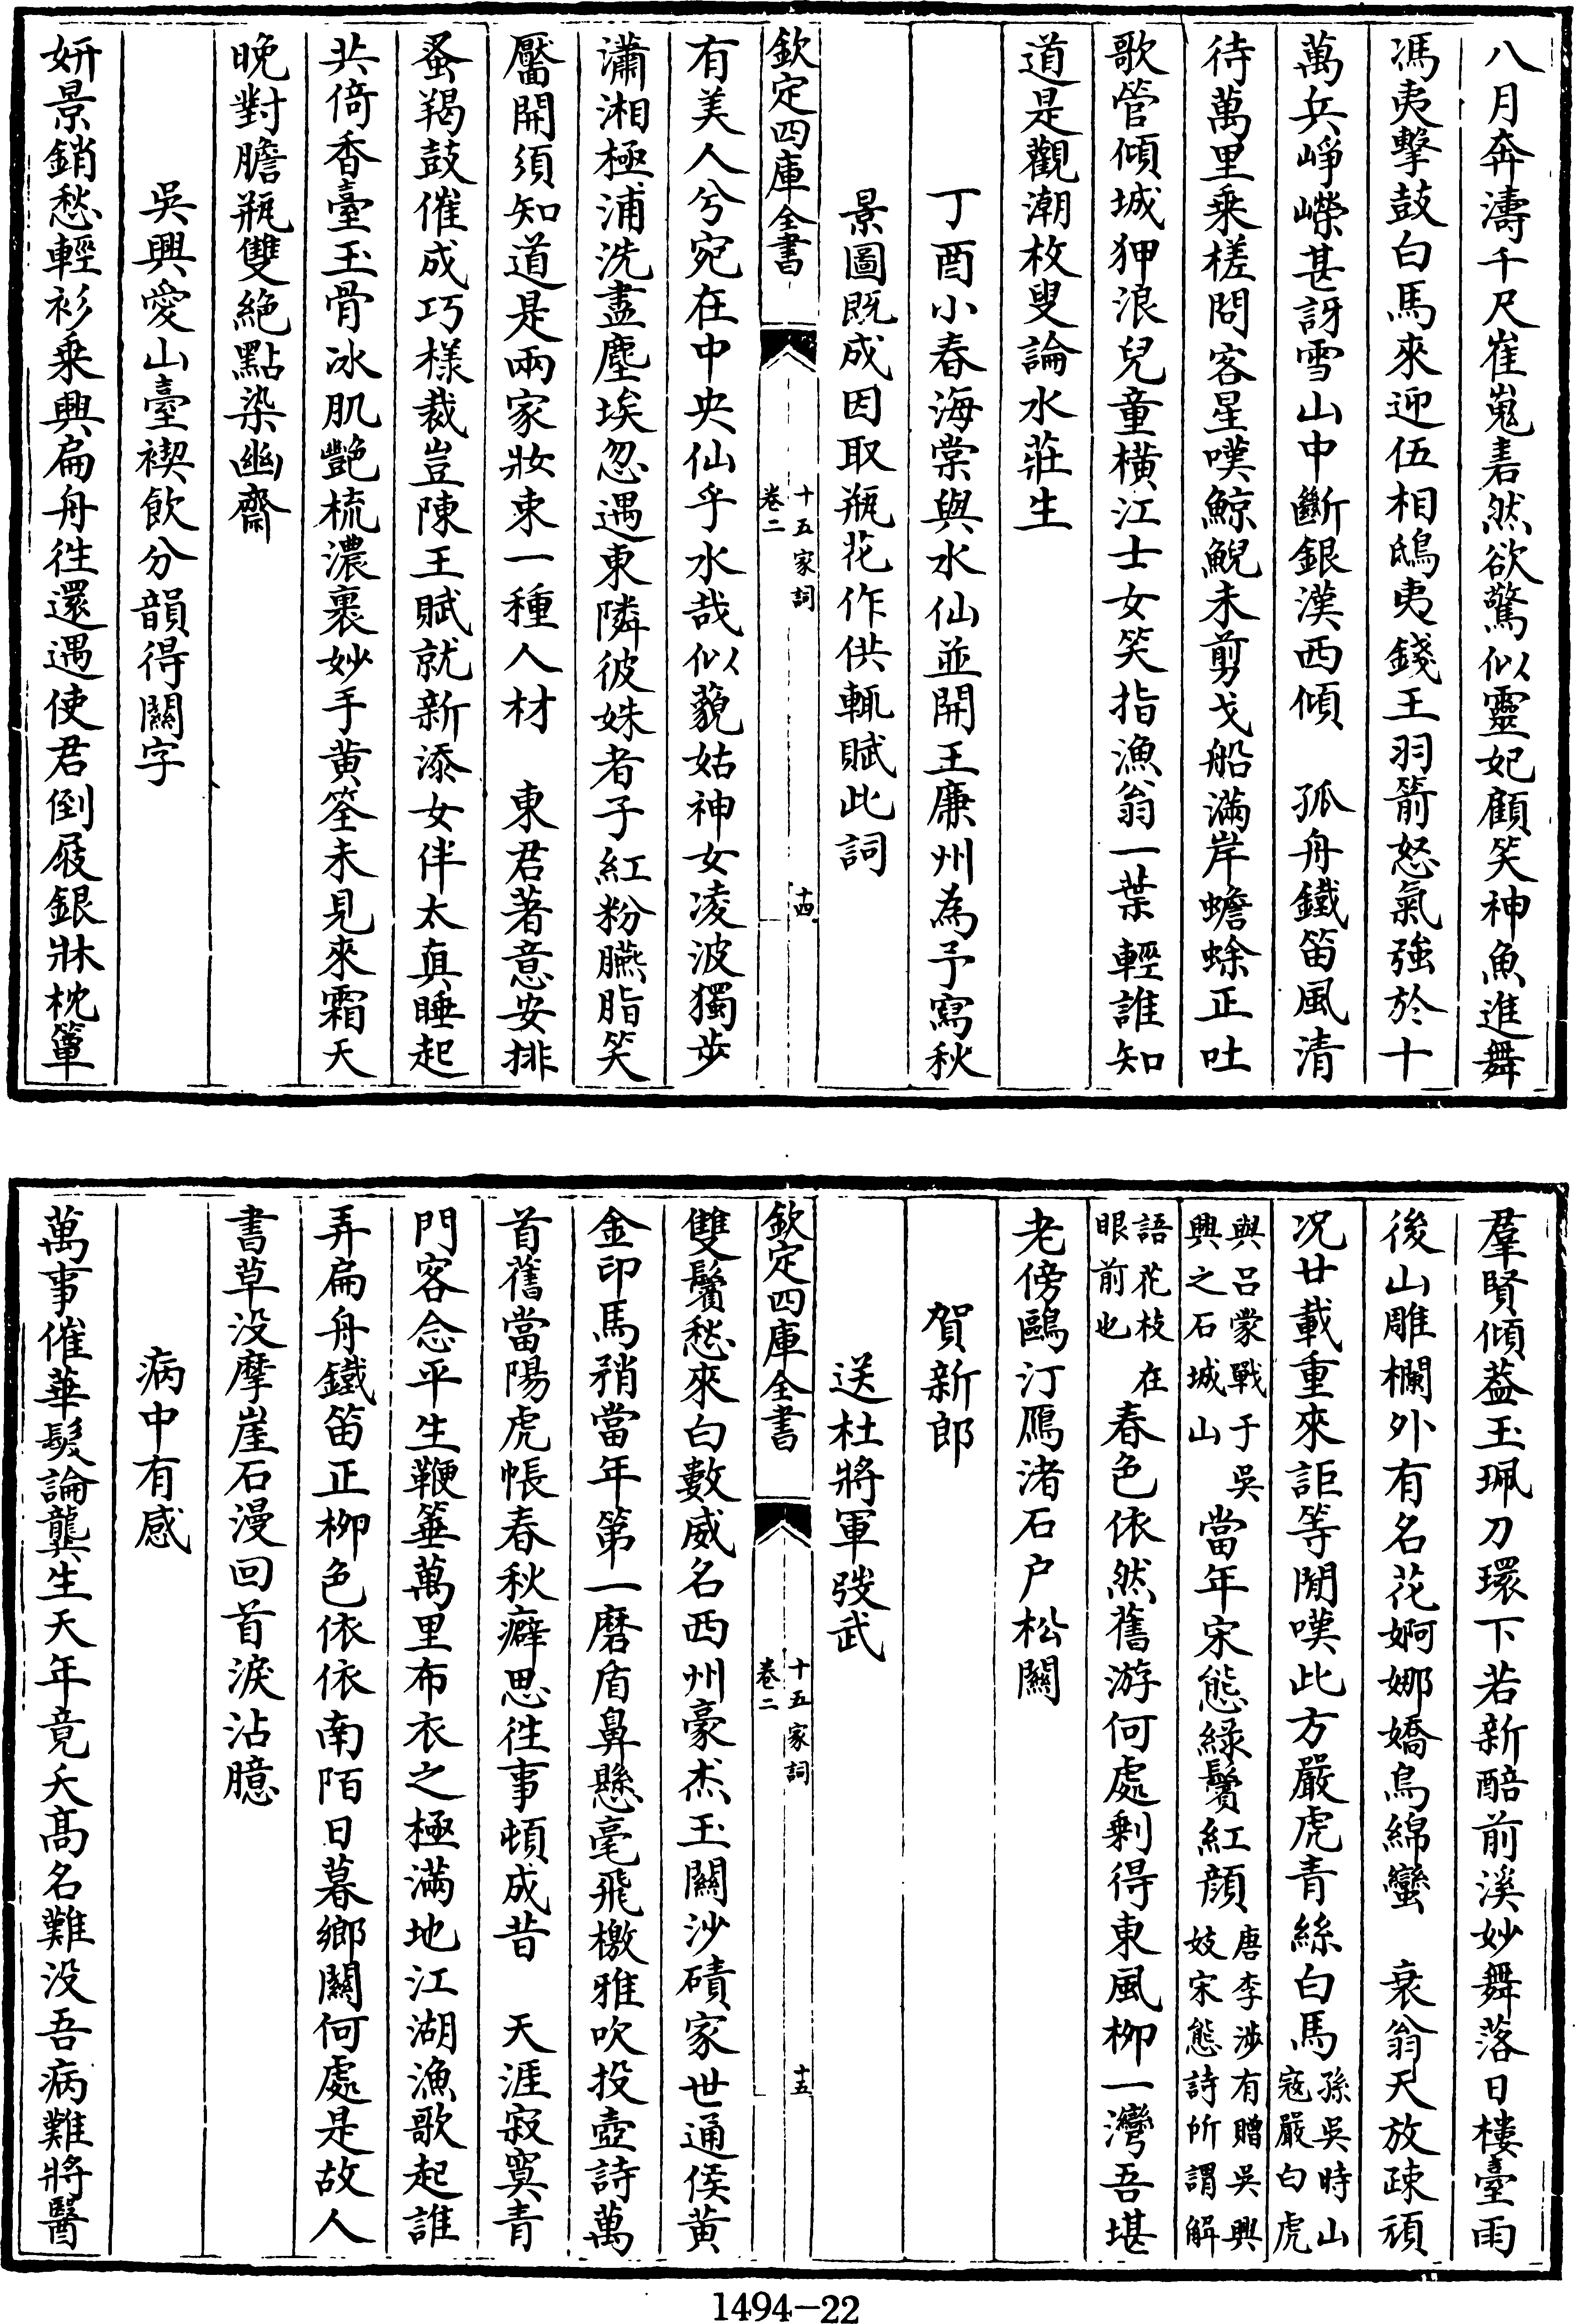 八月奔濤千尺崔嵬砉然欲驚似靈妃顧笑神魚進舞
馮夷擊鼓白馬來迎伍相鴟夷錢王羽箭怒氣強於十
萬兵崢嶸甚訝雪山中斷銀漢西傾　孤舟鐵笛風清
待萬里乗槎問客星嘆鯨鯢未剪戈船滿岸蟾蜍正吐
歌管傾城狎浪兒童橫江士女笑指漁翁一葉輕誰知
道是觀潮枚叟論水莊生
丁酉小春海棠與水仙並開王廉州為予寫秋
景圖既成因取瓶花作供輒賦此詞
欽定四庫全書
十五家詞
卷二
十四
有美人兮宛在中央仙乎水哉似藐姑神女凌波獨步
瀟湘極浦洗盡塵埃忽遇東隣彼姝者子紅粉臙脂笑
靨開須知道是兩家妝束一種人材　東君著意安排
蚤羯鼓催成巧様裁豈陳王賦就新添女伴太真睡起
共倚香臺玉骨冰肌艷梳濃裹妙手黄筌未見來霜天
晚對膽瓶雙絶點染幽齋
吳興愛山臺禊飲分韻得關字
妍景銷愁輕衫乗興扁舟往還遇使君倒屐銀牀枕簟
羣賢傾葢玉珮刀環下若新醅前溪妙舞落日樓臺雨
後山雕欄外有名花婀娜嬌鳥綿蠻　衰翁天放疎頑
况廿載重來詎等閒嘆此方嚴虎青絲白馬孫吳時山
寇嚴白虎
與呂蒙戰于吳
興之石城山
當年宋態緑鬢紅顔
唐李渉有贈吳興
妓宋態詩所謂解
語花枝在
眼前也
春色依然舊游何處剩得東風栁一灣吾堪
老傍鷗汀鴈渚石户松關
賀新郎
送杜將軍弢武
欽定四庫全書
十五家詞
卷二
十五
雙鬢愁來白數威名西州豪杰玉關沙磧家世通侯黄
金印馬矟當年第一磨盾鼻懸毫飛檄雅吹投壺詩萬
首舊當陽虎帳春秋癖思往事頓成昔　天涯寂寞青
門客念平生鞭箠萬里布衣之極滿地江湖漁歌起誰
弄扁舟鐵笛正栁色依依南陌日暮鄉關何處是故人
書草没摩崖石漫回首淚沾臆
病中有感
萬事催華髮論龔生天年竟夭髙名難没吾病難將醫
1494-22